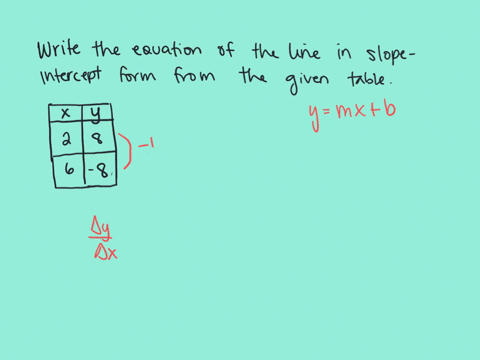 Write the equation of the line in slope-
intercept form from the given table.
y = mx + b
x y
2 8
6 -8
-1
Δy
Δx